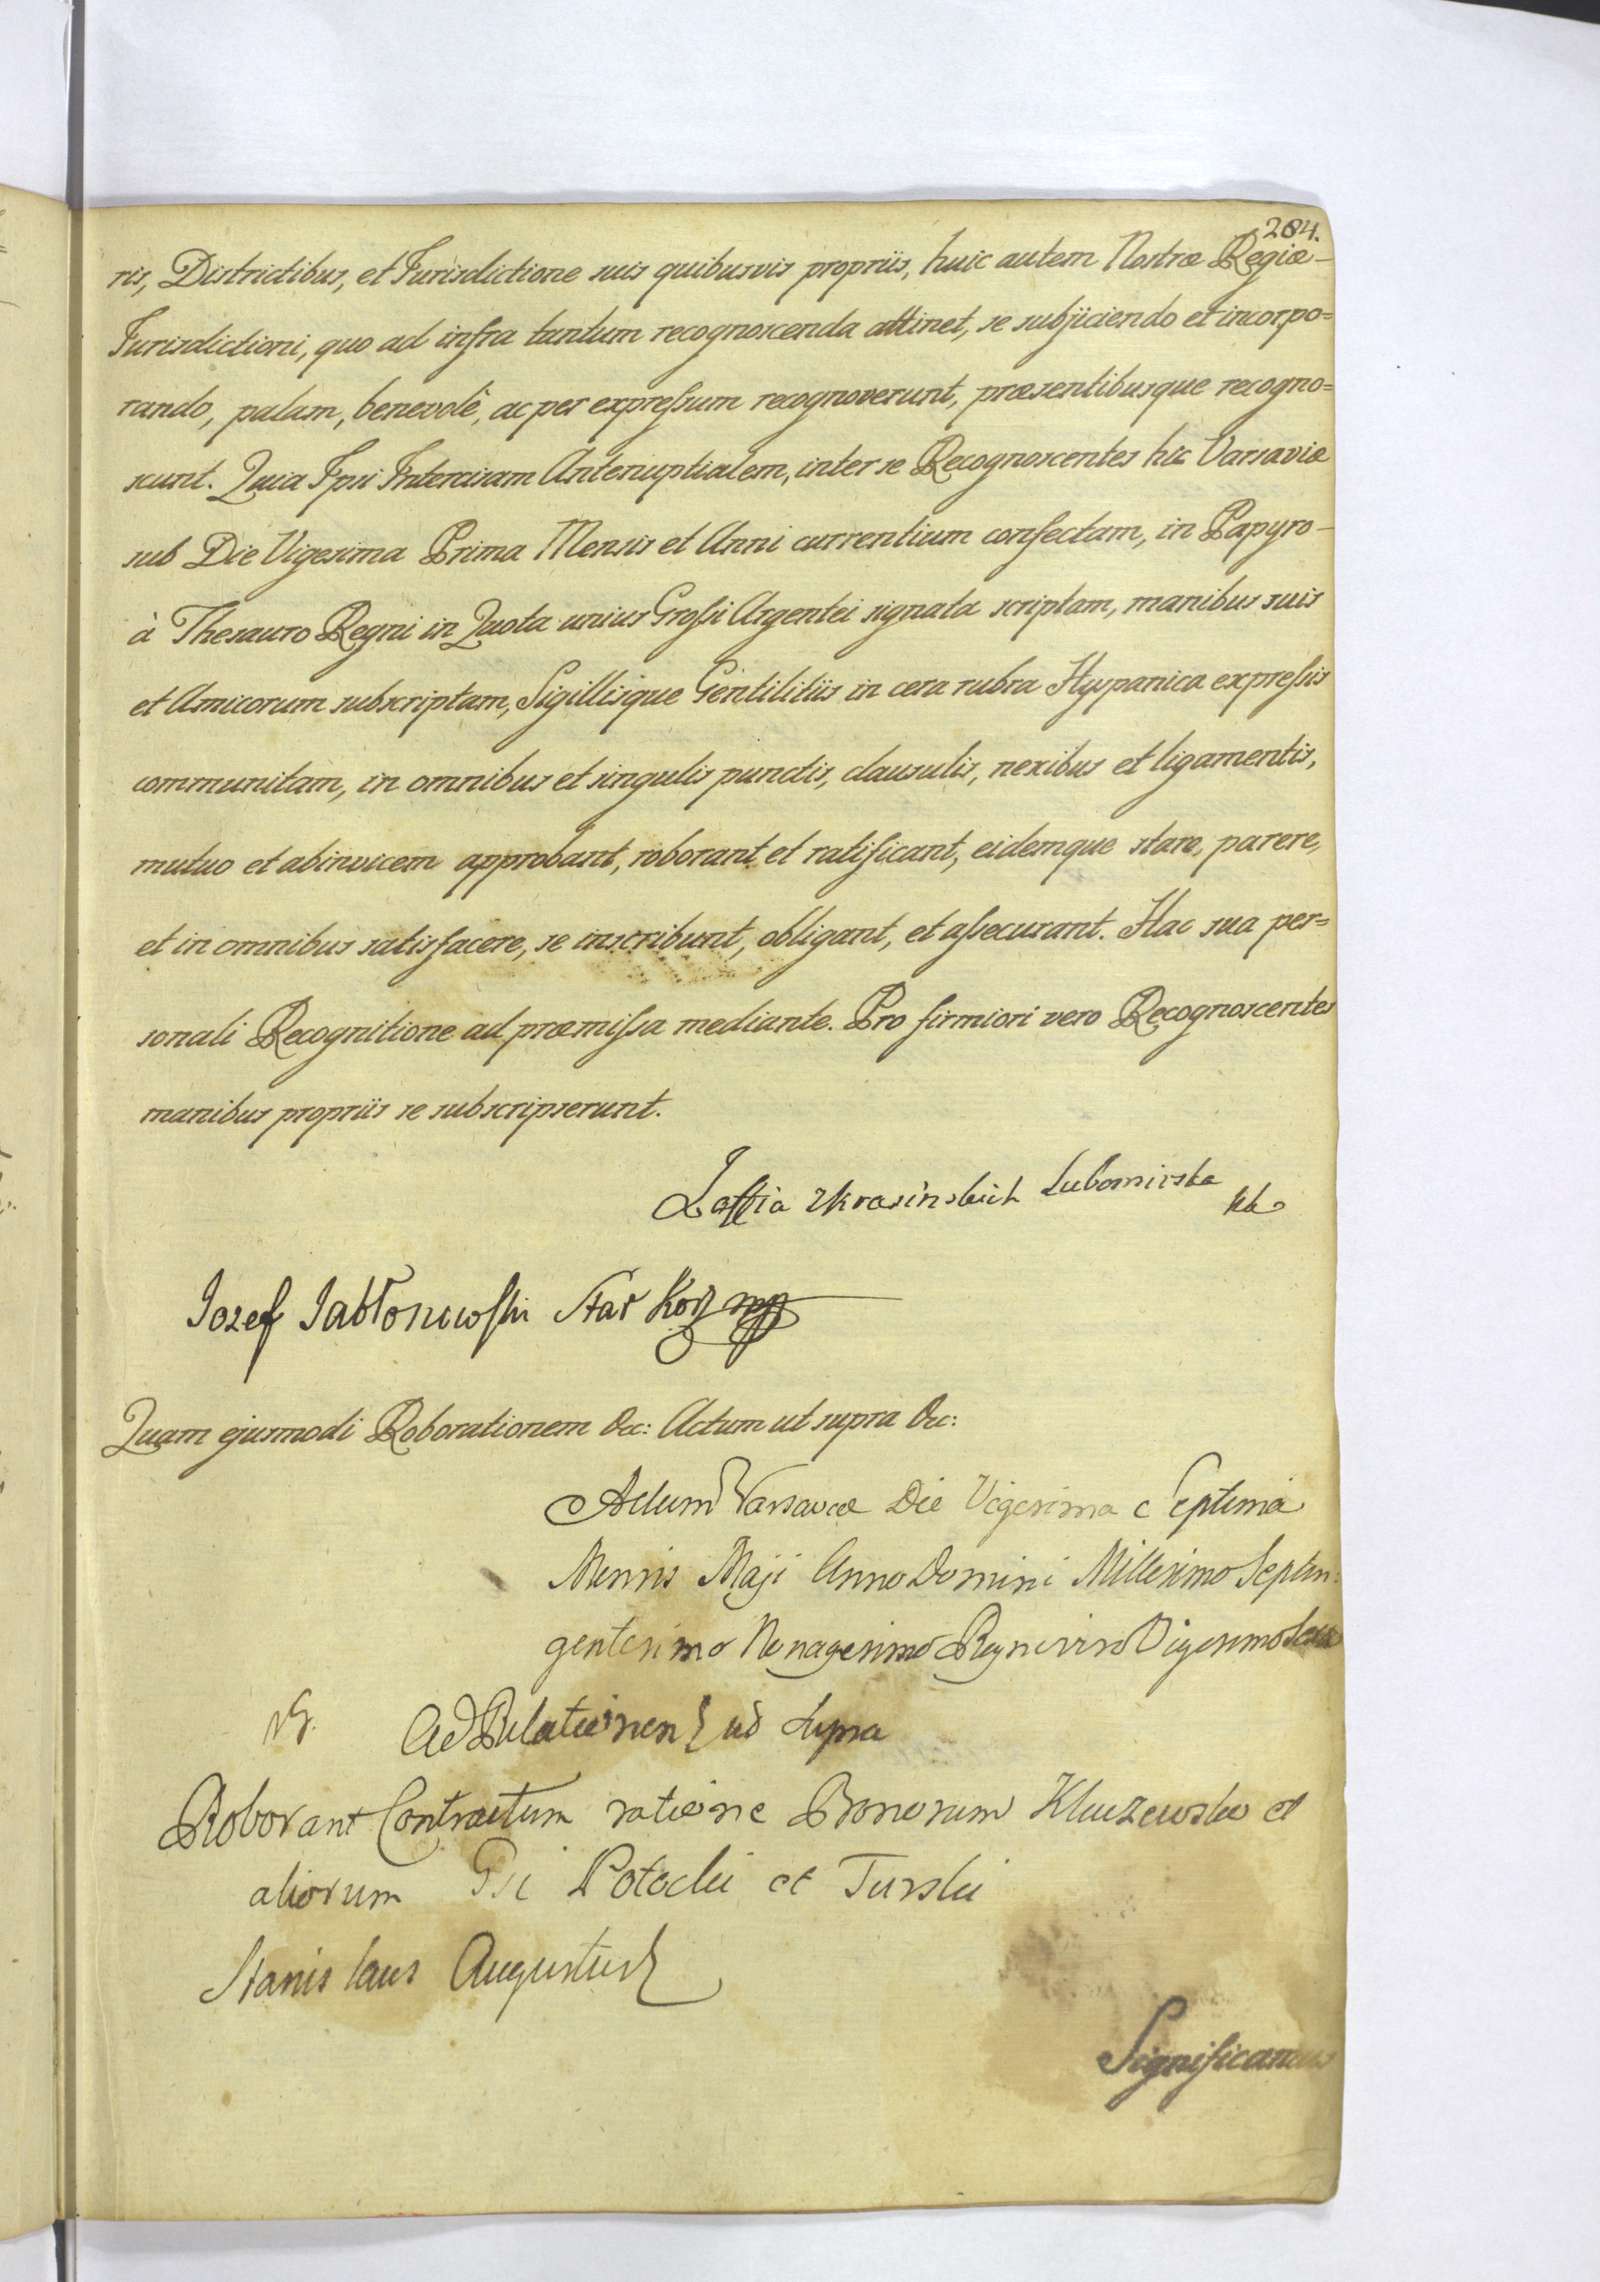 284.
ris, Districtibus, et Jurisdictione suis quibusvis propriis, huic autem Nostræ Regiæ
Jurisdictioni, quo ad infra tantum recognoscenda attinet, se subjiciendo et incorpo=
rando, palam, benevolè, ac per expressum recognoverunt, præsentibusque recogno=
scunt. Quia Ipsi Intercisam Antenuptialem, inter se Recognoscentes hic Varsaviæ
sub Die Vigesima Prima Mensis et Anni currentium confectam, in Papyro
à Thesauro Regni in Quota unius Grossi Argentei signata scriptam, manibus suis
et Amicorum subscriptam, Sigillisque Gentilitiis in cera rubra Hyspanica expressis
communitam, in omnibus et singulis punctis, clausulis, nexibus et ligamentis,
mutuo et abinvicem approbant, roborant et ratificant, eidemque stare, parere,
et in omnibus satisfacere, se inscribunt, obligant, et assecurant. Hac sua per=
sonali Recognitione ad præmissa mediante. Pro firmiori vero Recognoscentes
manibus propriis se subscripserunt.
Zoffia zkrasinskich Lubomirska
Iozef Iabłonowski Star Kor mpp
Quam ejusmodi Roborationem &c: Actum ut supra &c:
Actum Varsaviæ Die Vigesima Septima
Mensis Maji Anno Domini Millesimo Septin:
gentesimo Nonagesimo Regni viro Vigesimo
Ad Relationem ut supra
Roborant Contractum ratione Bonorum Kluzewsko et
aliorum Potocki et Turski
Stanislaus Augustus
Significamus